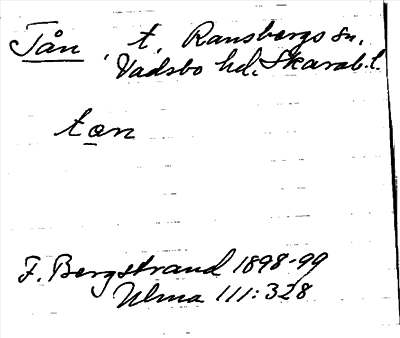 Tån, t. Ransbergs sn.
Vadsbo hd. Skarab. l.
tɑn
F. Bergstrand 1898-99
Ulma 111:328